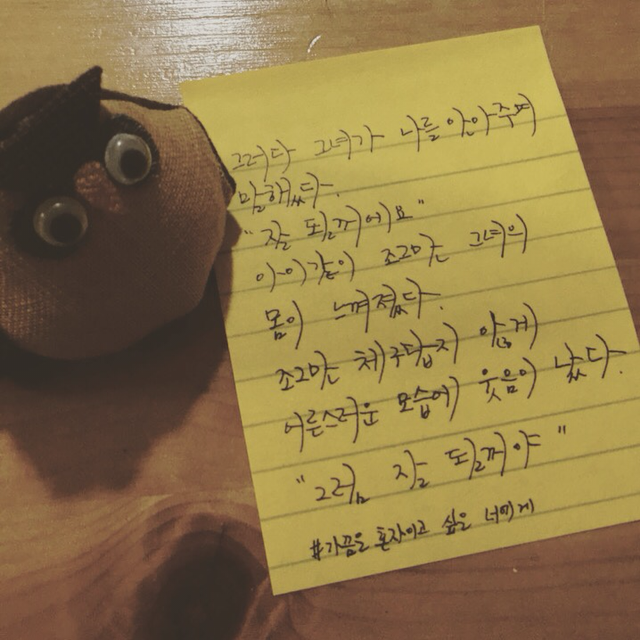 그러다 그녀가 나를 안아주며
말했다.
"잘 될꺼에요"
아이같이 조그만 그녀의
몸이 느껴졌다.
조그만 체구답지 않게
어른스러운 모습에 웃음이 났다.
"그럼 잘 될꺼야"
#가끔은 혼자이고 싶은 너에게